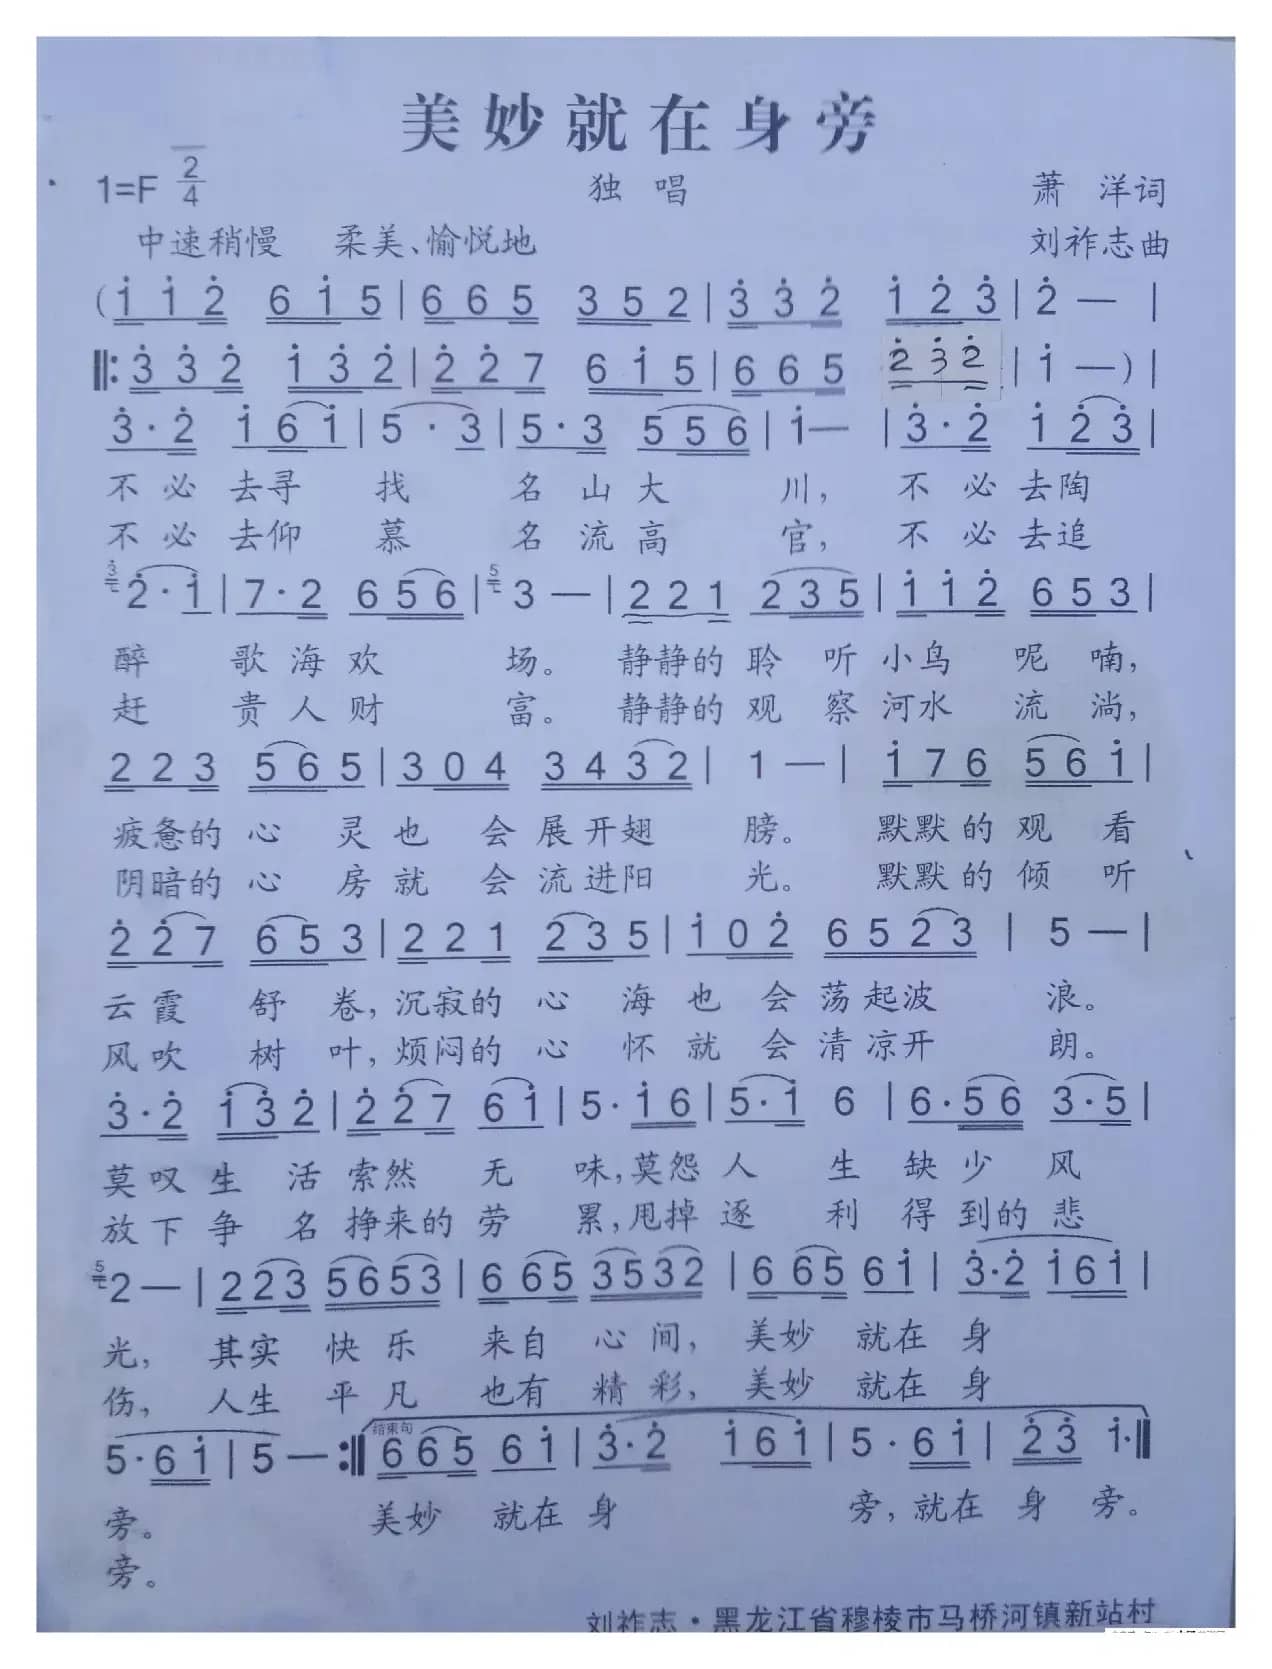 美妙就在身旁
1=F 2/4 独 唱 萧 洋词
中速稍慢 柔美、愉悦地 刘祚志曲
(i̇ i̇ 2̇ 6 i̇ 5 | 6 6 5 3 5 2 | 3̇ 3̇ 2̇ i̇ 2̇ 3̇ | 2̇ — |
‖: 3̇ 3̇ 2̇ i̇ 3̇ 2̇ | 2̇ 2̇ 7 6 i̇ 5 | 6 6 5 2̇ 3̇ 2̇ | i̇ — ) |
3̇ · 2̇ i̇ 6 i̇ | 5 · 3 | 5 · 3 5 5 6 | i̇ — | 3̇ · 2̇ i̇ 2̇ 3̇ |
不 必 去寻 找 名 山 大 川, 不 必 去陶
不 必 去仰 慕 名 流 高 官, 不 必 去追
3̇ 2̇ · i̇ | 7 · 2 6 5 6 | 5 3 — | 2 2 1 2 3 5 | i̇ i̇ 2̇ 6 5 3 |
醉 歌 海 欢 场。 静静的 聆 听 小鸟 呢 喃,
赶 贵 人 财 富。 静静的 观 察 河水 流 淌,
2 2 3 5 6 5 | 3 0 4 3 4 3 2 | 1 — | i̇ 7 6 5 6 i̇ |
疲惫的 心 灵 也 会 展 开 翅 膀。 默默 的 观 看
阴暗的 心 房 就 会 流 进 阳 光。 默默 的 倾 听
2̇ 2̇ 7 6 5 3 | 2 2 1 2 3 5 | i̇ 0 2̇ 6 5 2 3 | 5 — |
云 霞 舒 卷, 沉寂的 心 海 也 会 荡 起 波 浪。
风 吹 树 叶, 烦闷的 心 怀 就 会 清 凉 开 朗。
3̇ · 2̇ i̇ 3̇ 2̇ | 2̇ 2̇ 7 6 i̇ | 5 · i̇ 6 | 5 · i̇ 6 | 6 · 5 6 3 · 5 |
莫 叹 生 活 索然 无 味, 莫怨 人 生 缺 少 风
放 下 争 名 挣来的 劳 累, 甩掉 逐 利 得 到的 悲
5 2 — | 2 2 3 5 6 5 3 | 6 6 5 3 5 3 2 | 6 6 5 6 i̇ | 3̇ · 2̇ i̇ 6 i̇ |
光, 其实 快 乐 来自 心 间, 美妙 就在 身
伤, 人生 平 凡 也有 精 彩, 美妙 就在 身
5 · 6 i̇ | 5 — :‖ 结束句 6 6 5 6 i̇ | 3̇ · 2̇ i̇ 6 i̇ | 5 · 6 i̇ | 2̇ 3̇ i̇ · ‖
旁。 美妙 就在 身 旁, 就在 身 旁。
旁。
刘祚志·黑龙江省穆棱市马桥河镇新站村